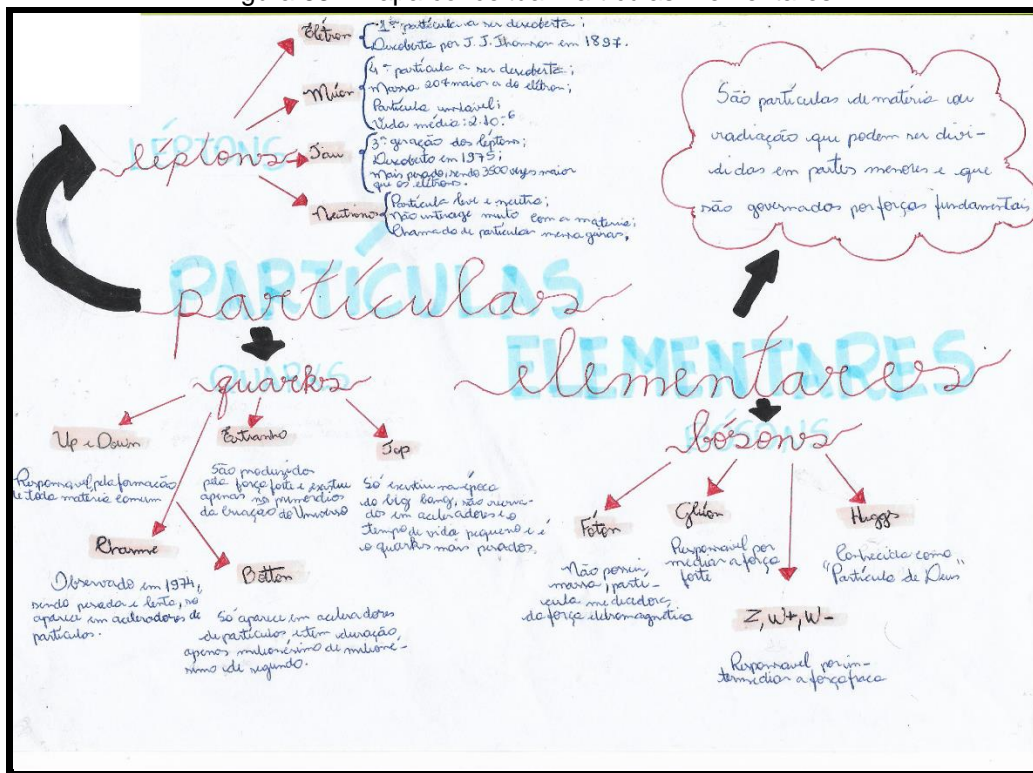 Elétron
1ª partícula a ser descoberta;
Descoberta por J. J. Thomson em 1897.
Múon
4ª partícula a ser descoberta;
Massa 207 maior a do elétron;
Partícula instável;
Vida média: 2.10-6
LÉPTONS
léptons
Tau
3ª geração dos léptons;
Descoberto em 1975;
mais pesado, sendo 3500 vezes maior
que os elétrons.
Neutrinos
Partícula leve e neutra;
não interage muito com a matéria;
Chamado de partículas mensageiras.
São partículas de matéria ou
radiação que podem ser divi-
didas em partes menores e que
são governados por forças fundamentais
PARTÍCULAS
partículas
ELEMENTARES
elementares
QUARKS
quarks
Up e Down
Responsável pela formação
de toda matéria comum
Estranho
São produzidos
pela força forte e existiu
apenas no primórdios
da criação do Universo
Top
Só existiu na época
do big bang, são recria-
dos em aceleradores e o
tempo de vida pequeno e é
o quarks mais pesados.
Charme
Observado em 1974,
sendo pesado e lento, só
aparece em aceleradores de
partículas.
Botton
Só aparece em aceleradores
de partículas e tem duração,
apenas milionésimo de milioné-
simo de segundo.
BÓSONS
bósons
Fóton
Não possui,
massa, partí-
cula mediadora,
da força eletromagnética
Glúon
Responsável por
mediar a força
forte
Z, W+, W-
Responsavel por in-
termediar a força fraca
Higgs
Conhecida como
"Partícula de Deus"